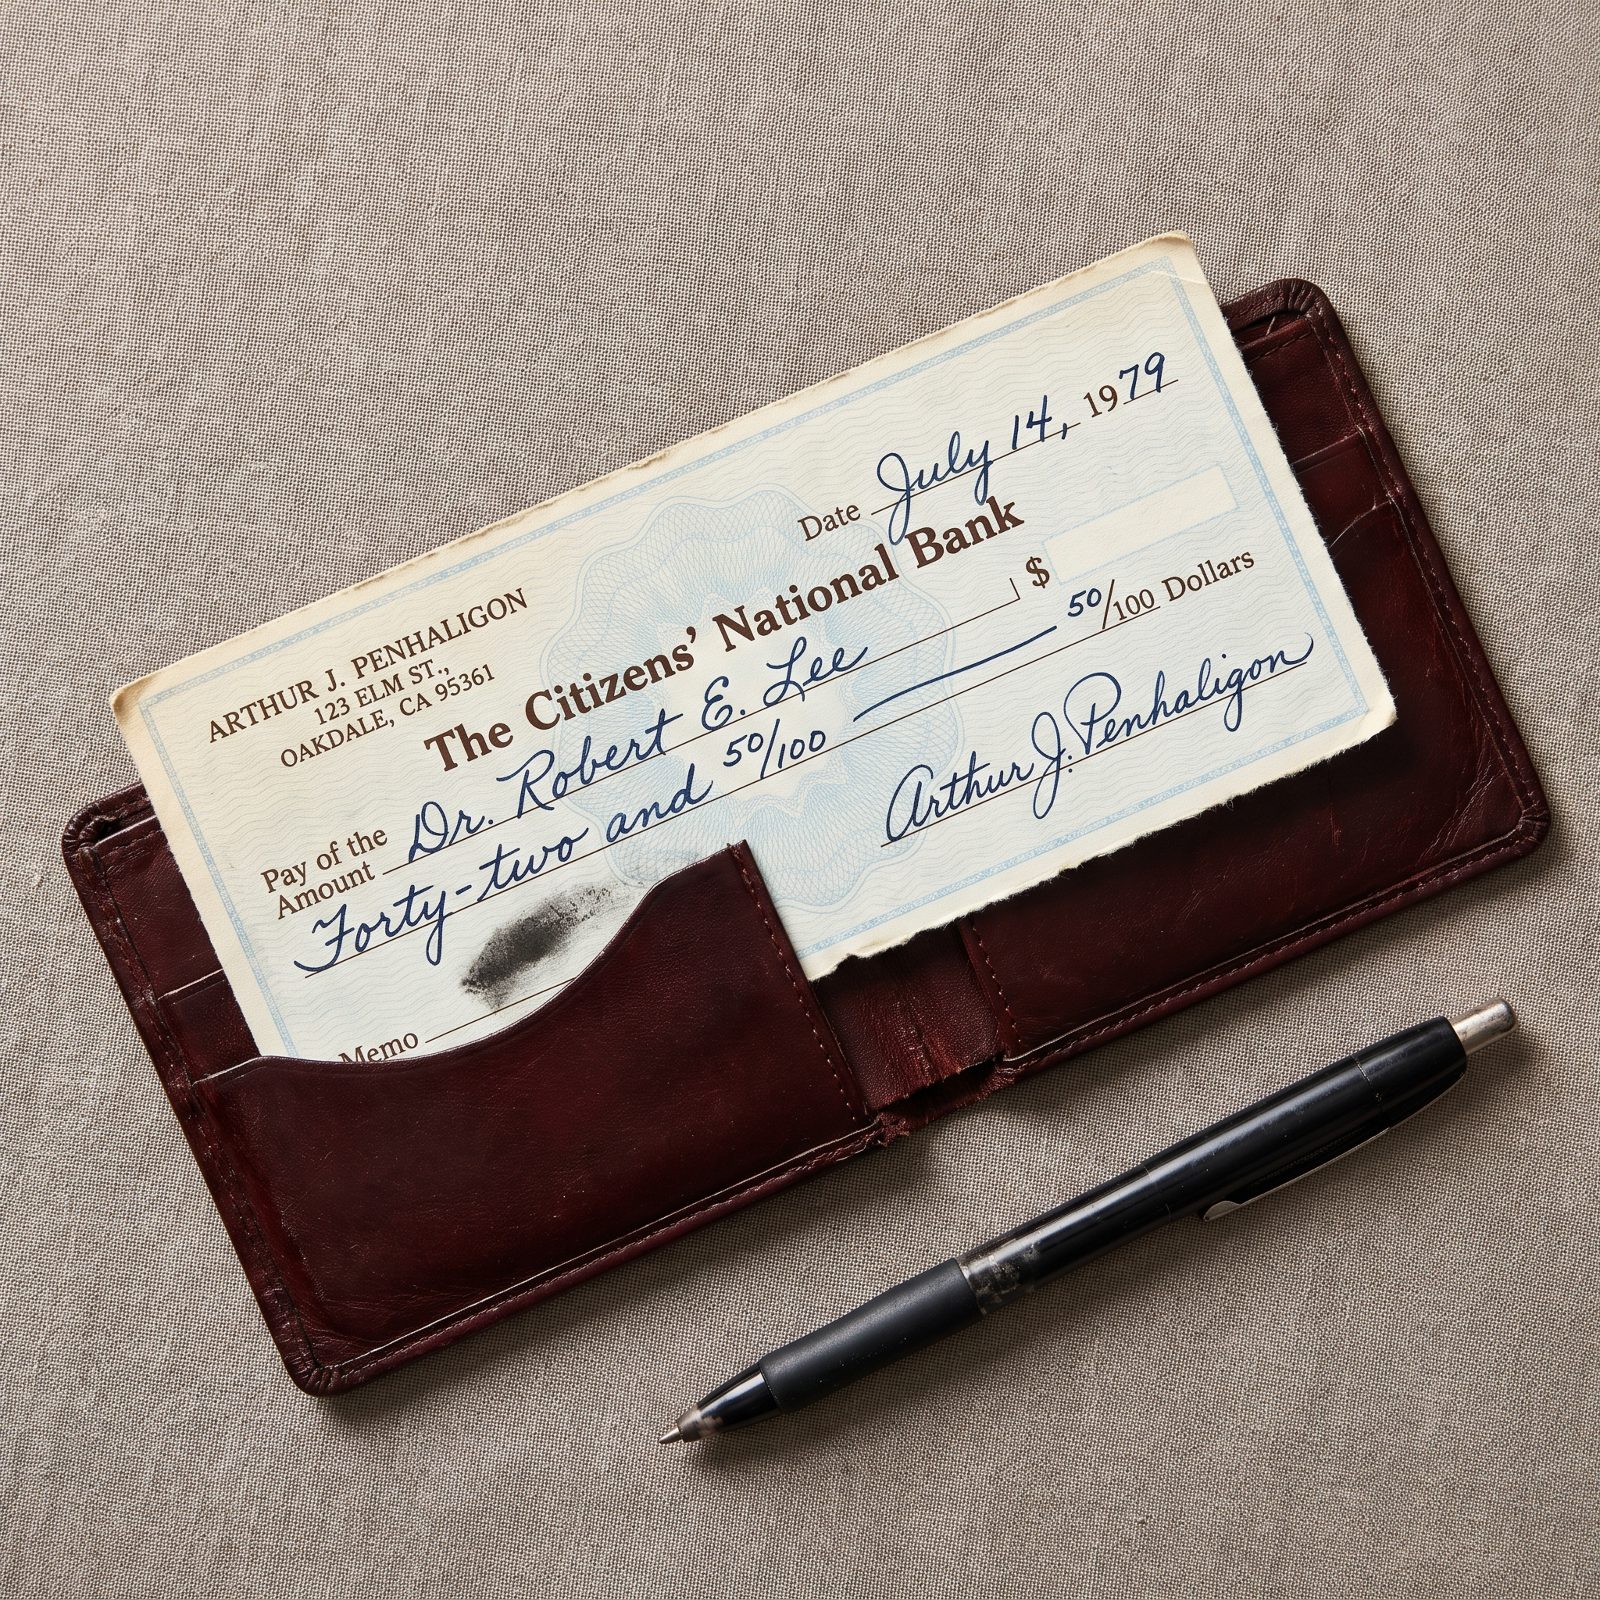 Date July 14, 1979
ARTHUR J. PENHALIGON
123 ELM ST.,
OAKDALE, CA 95361
The Citizens' National Bank
Pay of the
Amount Dr. Robert E. Lee $
Forty-two and 50/100 50/100 Dollars
Arthur J. Penhaligon
Memo